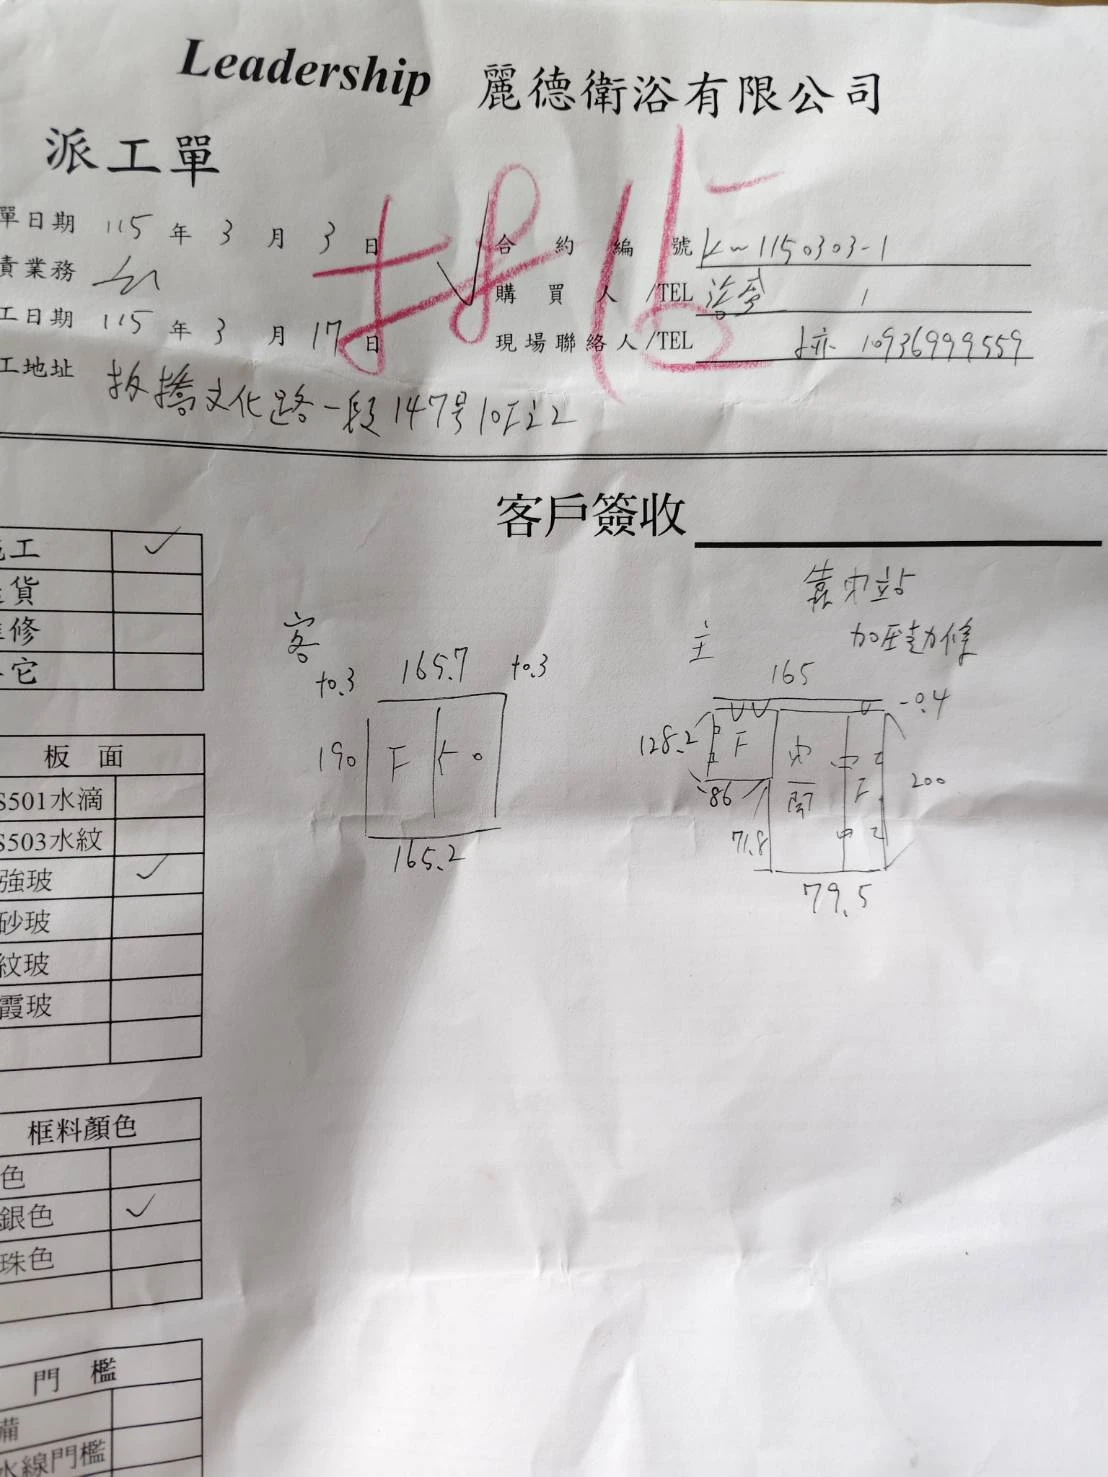 Leadership 麗德衛浴有限公司
派工單
單日期 115 年 3 月 3 日
合約編號 KW1150303-1
責業務
購買人/TEL
工日期 115 年 3 月 17 日
現場聯絡人/TEL 10936999559
工地址 板橋文化路一段147号10F之2
客戶簽收
工 ✓
貨
修
它
靠內站
加壓墊條
客
+0.3 165.7 +0.3
190 F
165.2
主
165
-0.4
128.2 F 內開 F 200
86
71.8
79.5
板面
S501水滴
S503水紋
強玻 ✓
砂玻
紋玻
霞玻
框料顏色
色
銀色 ✓
珠色
門檻
備
水線門檻